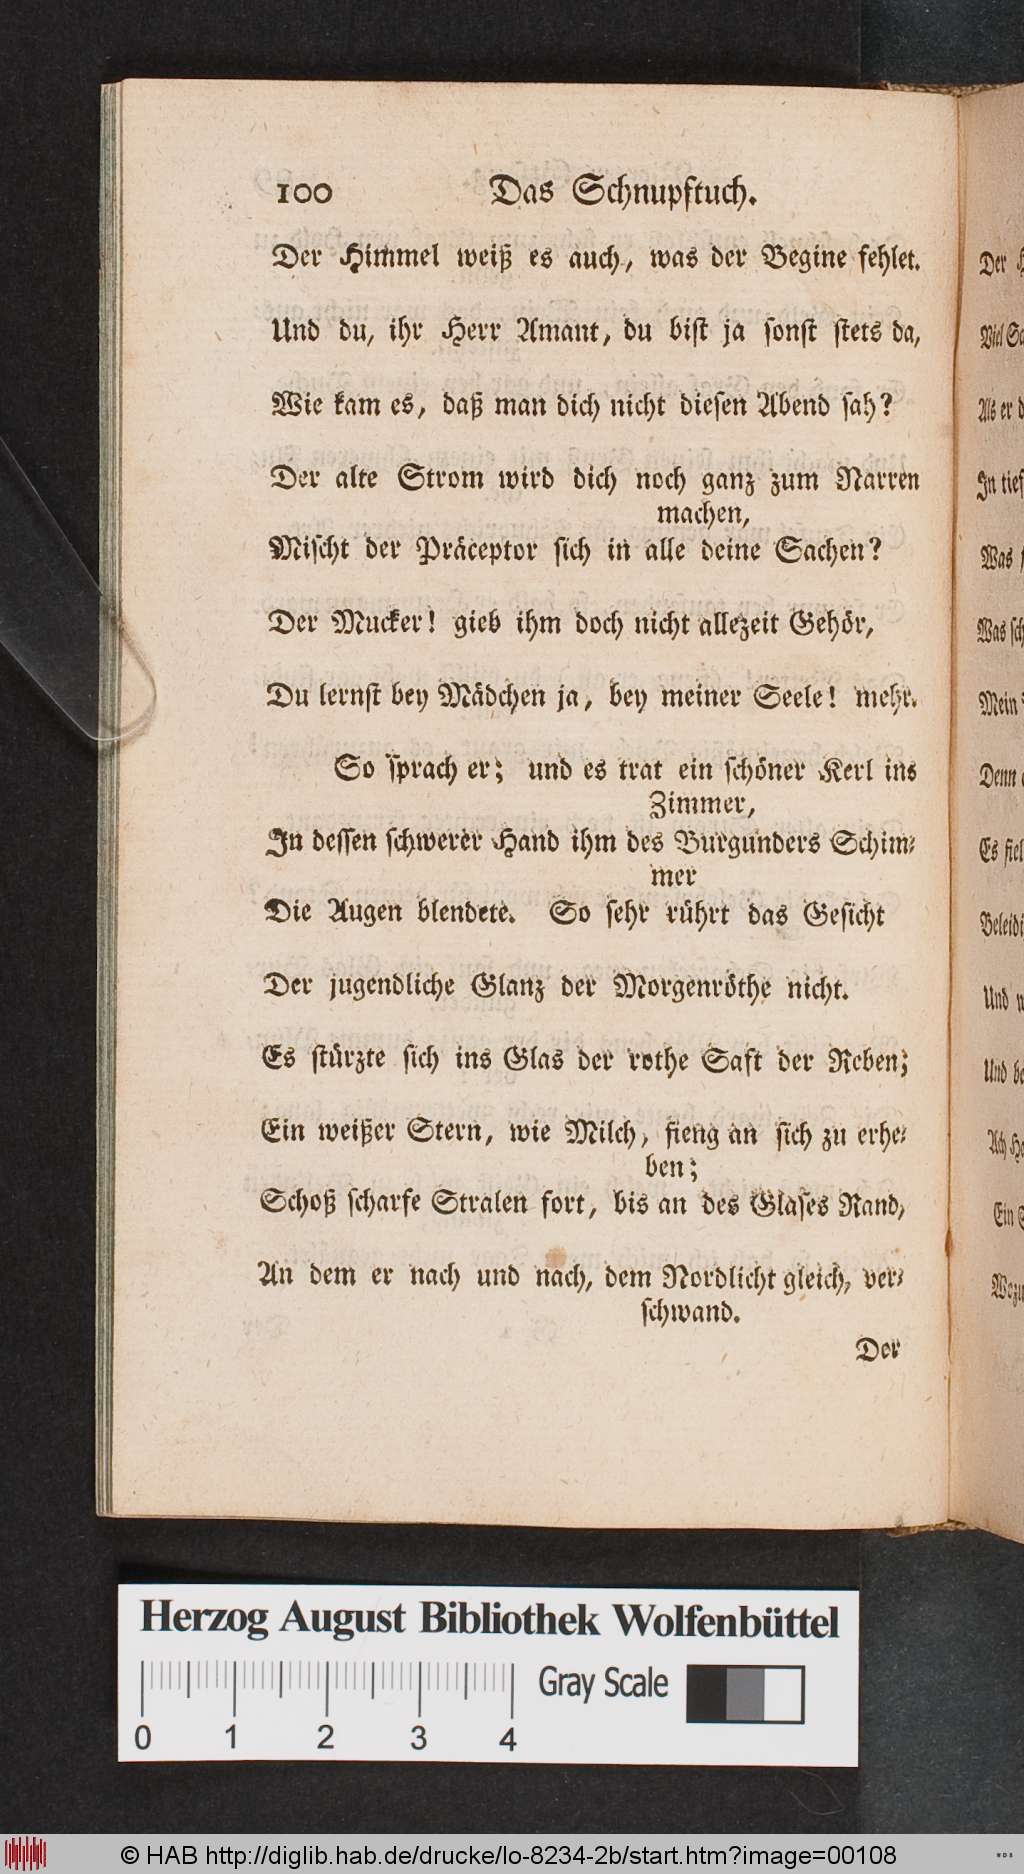 100 Das Schnupftuch.
Der Himmel weiß es auch, was der Begine fehlet.
Und du, ihr Herr Amant, du bist ja sonst stets da,
Wie kam es, daß man dich nicht diesen Abend sah?
Der alte Strom wird dich noch ganz zum Narren
machen,
Mischt der Präceptor sich in alle deine Sachen?
Der Mucker! gieb ihm doch nicht allezeit Gehör,
Du lernst bey Mädchen ja, bey meiner Seele! mehr.
So sprach er; und es trat ein schöner Kerl ins
Zimmer,
In dessen schwerer Hand ihm des Burgunders Schim-
mer
Die Augen blendete. So sehr rührt das Gesicht
Der jugendliche Glanz der Morgenröthe nicht.
Es stürzte sich ins Glas der rothe Saft der Reben;
Ein weißer Stern, wie Milch, fieng an sich zu erhe-
ben;
Schoß scharfe Stralen fort, bis an des Glases Rand,
An dem er nach und nach, dem Nordlicht gleich, ver-
schwand.
Der
Der
Viel
Als er
In tief
Was
Was sch
Mein
Denn
Es fiel
Beleidi
Und
Und be
Ach
Ein
Wozu
Herzog August Bibliothek Wolfenbüttel
Gray Scale
0 1 2 3 4
© HAB http://diglib.hab.de/drucke/lo-8234-2b/start.htm?image=00108